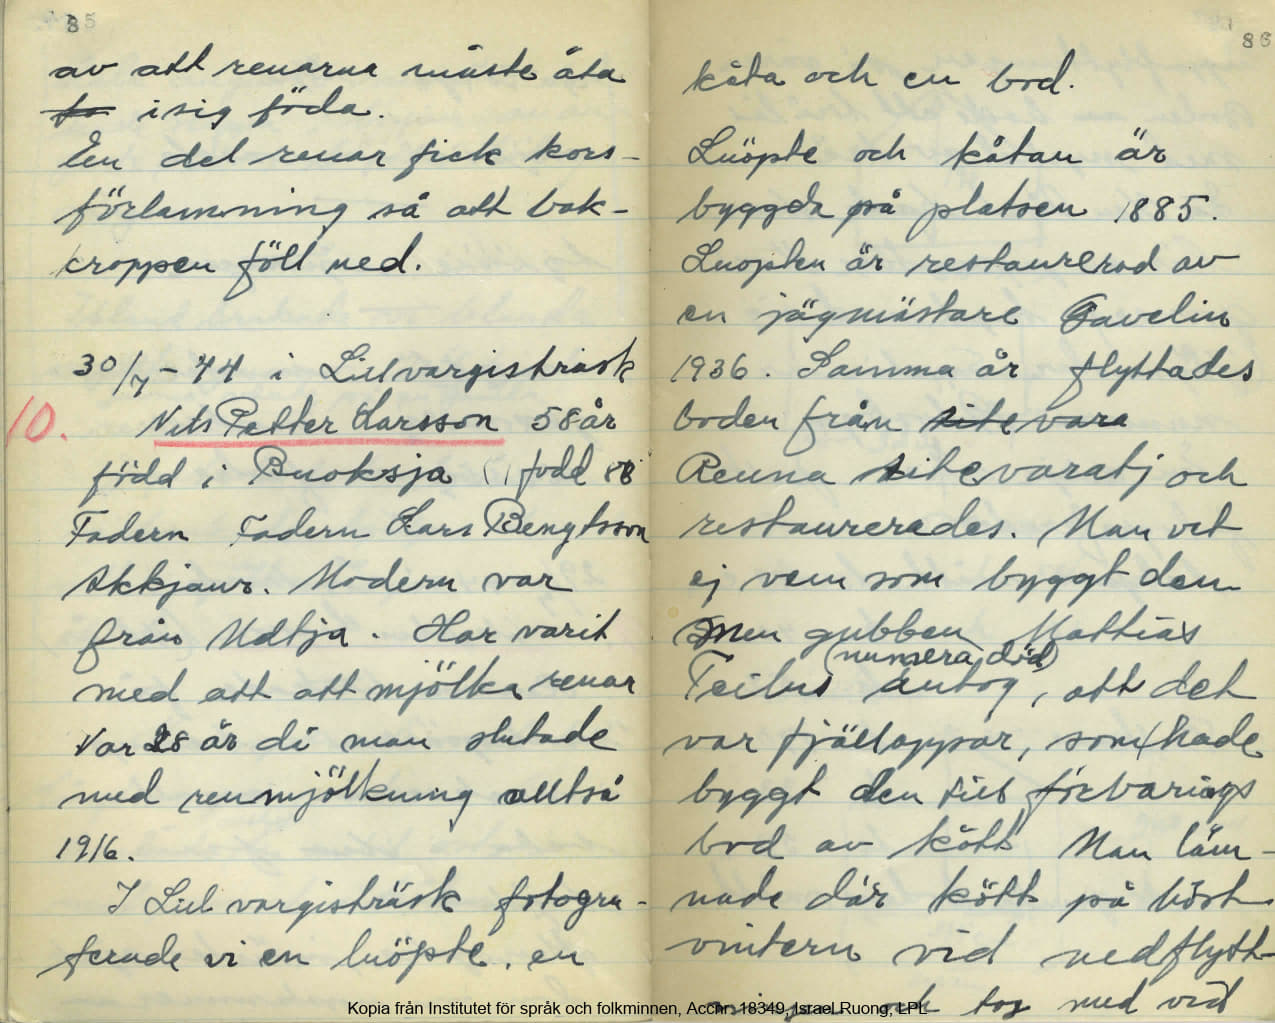 85
av att renarna måste äta
to i sig föda.
En del renar fick kors-
förlamning så att bak-
kroppen föll ned.
30/7 - 44 i Lillvargisträsk
10. Nils Petter Larsson 58 år
född i Buoksja (född 88
Fadern Fadern Lars Bengtsson
Akkjaur. Modern var
från Udtja. Har varit
med att att mjölka renar
Var 28 år då man slutade
med renmjölkning alltså
1916.
I Lillvargisträsk fotogra-
ferade vi en luöpte, en
86
kåta och en bod.
Luöpte och kåtan är
byggda på platsen 1885.
Luopten är restaurerad av
en jägmästare Tavelin
1936. Samma år flyttades
boden från sitevara
Renna sitevaratj och
restaurerades. Man vet
ej vem som byggt den
men gubben Mattias
(numera död)
Teilus antog, att det
var fjällappar, som hade
byggt den till förvarings
bod av kött Man läm-
nade där kött på höst
vintern vid nedflytt-
och tog med vid
Kopia från Institutet för språk och folkminnen, Accnr 18349, Israel Ruong, LPL